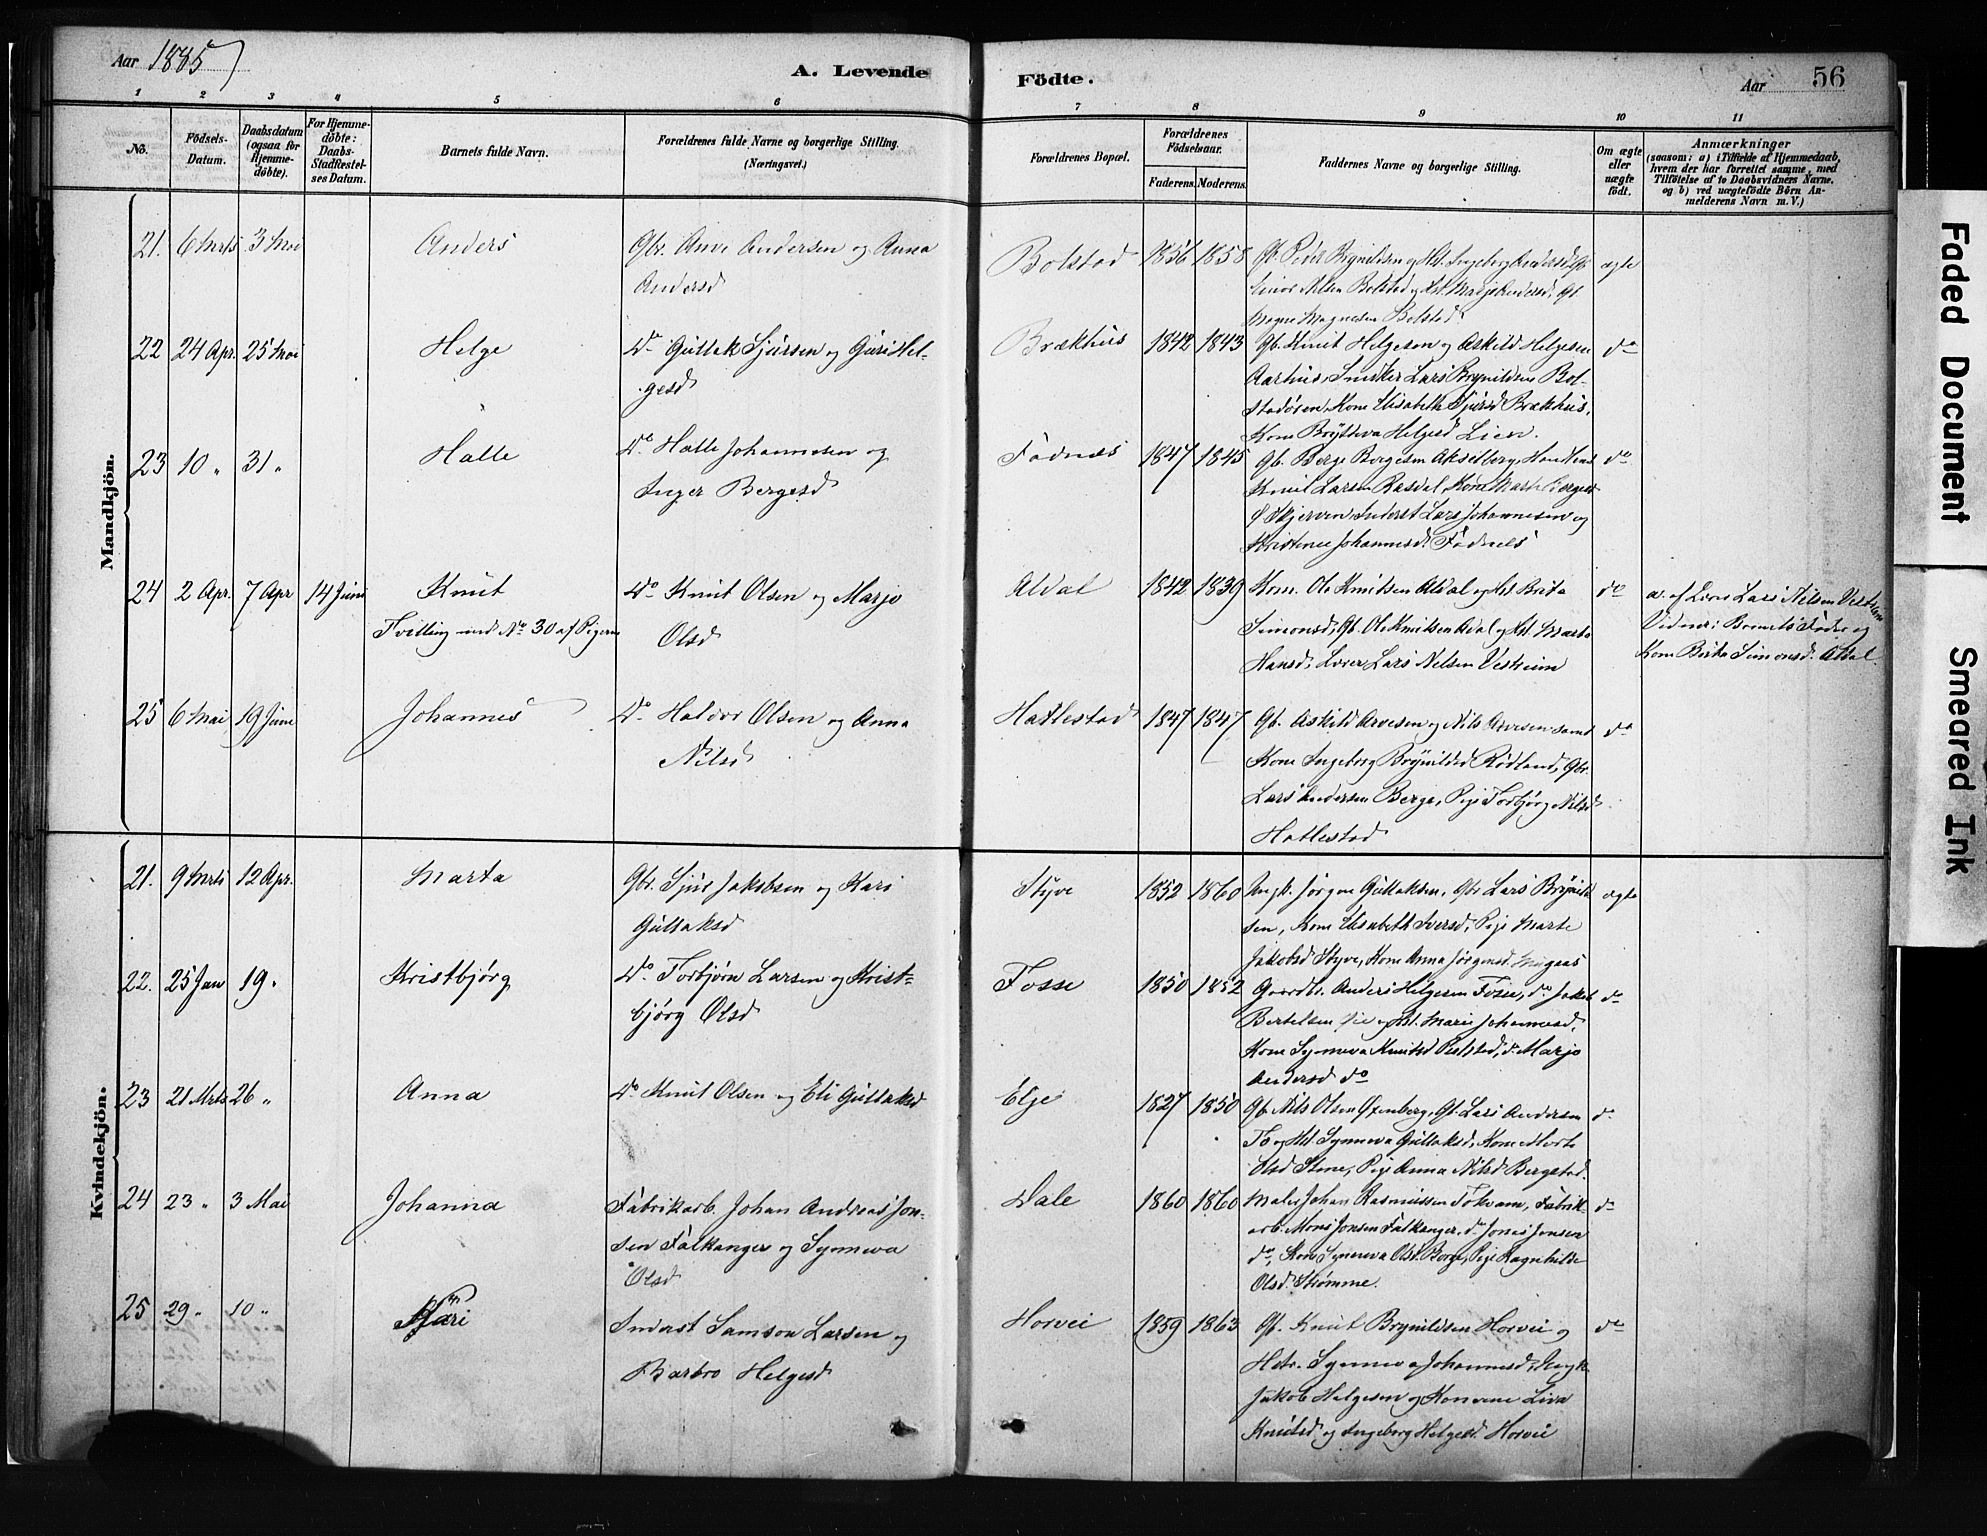 Aar 1885
A. Levende
Födte.
Aar
56
1 2 3 4 5 6 7 8 9 10 11
No.
Födsels-
Datum.
Daabsdatum
(ogsaa for
Hjemme-
döbte).
For Hjemme-
döbte:
Daabs-
Stadfæstel-
ses Datum.
Barnets fulde Navn.
Forældrenes fulde Navne og borgerlige Stilling.
(Næringsvei.)
Forældrenes Bopæl.
Forældrenes
Födselsaar.
Faderens. Moderens.
Faddernes Navne og borgerlige Stilling.
Om ægte
eller
uægte
födt.
Anmærkninger
(saasom: a) i Tilfælde af Hjemmedaab,
hvem der har forrettet samme, med
Tilföielse af to Daabsvidners Navne.
og b) ved uægtefödte Börn An-
melderens Navn m. V.)
Mandkjön.
21. 6 Mrts 3 Mai Anders
Gbr. Arne Andersen og Anna
Andersd
Bolstad 1856 1858
Gb. Peder Brynildsen og Hst. Ingeborg Andersd Gb
Einar Nilsen Bolstad og Hst. Marjo Andersd, Gb.
Mogne Magnesen Bolstad.
ægte
22 24 Apr. 25 Mai Helge
Do Gullak Sjursen og Guri Hel-
gesd
Brækhus 1842 1843
Gb. Knut Helgesen og Askild Helgesen
Aarhus, Snedker Lars Brynildsen Bol-
stadøren, Kone Elisabeth Sjursd Brækhus,
Kone Brytteva Helgesd Lien.
do
23 10 " 31 " Halle
Do Halle Johannesen og
Inger Bergesd
Fadnes 1847 1845
Gb. Berge Bergesen Akselberg,
Knut Larsen Rasdal, Kone Marta Bergesd
Ø Skjerven, Inderst Lars Johannesen og
Kristense Johannesd. Fadnes
do
24 2 Apr. 7 Apr 14 Juni Knut
Tvilling med No 30 af Pigerne
Do Knut Olsen og Marjo
Olsd
Aldal 1842 1839
Kom. Ole Knutsen Aldal og Hst. Brita
Simonsd, Gb. Ole Knutsen Adal og Hst. Marta
Hansd, Lærer Lars Nilsen Vesheim
do
a. af Lærer Lars Nilsen Vestheim
Vidner: Barnets Fader og
Kone Brita Simonsd. Aldal.
25 6 Mai 19 Juni Johannes
Do Haldor Olsen og Anna
Nilsd
Hatlestad 1847 1847
Gb. Askild Arvesen og Nils Arvesen samt
Kone Ingeborg Brynildsd Rödland, Gbr.
Lars Andersen Berge, Pige Torbjörg Nilsd
Hatlestad
do
Kvindekjön.
21. 9 Mrts 12 Apr. Marta
Gbr. Sjur Jakobsen og Kari
Gullaksd
Styve 1852 1860
Ungk. Jørgen Gullaksen, Gbr Lars Brynild
sen, Kone Elisabeth Iversd, Pige Marte
Jakobsd Styve, Kone Anna Jørgensd. Mugaas
ægte
22. 25 Jan 19 " Kristbjørg
Do Torbjørn Larsen og Krist-
bjørg Olsd
Fosse 1850 1852
Gaardbr. Anders Helgesen Fosse, do Jakob
Bertelsen og Hst. Marie Johannesd,
Kone Synneva Knutsd Bolstad, do Marjo
Andersd do
do
23 21 Mrts 26 " Anna
Do Knut Olsen og Eli Gullaksd
Elge 1827 1850
Gb. Nils Olsen Øxenberg, Gb. Lars Andersen
Fo og Hst. Synneva Gullaksd, Kone Marta
Olsd Stene, Pige Anna Nilsd Bergstad.
do
24 23 " 3 Mai Johanna
Fabrikarb. Johan Andreas Jon-
sen Falkanger og Synneva
Olsd
Dale 1860 1860
Maler Johan Rasmussen Tokvam, Fabrik-
arb. Mons Jonsen Falkanger, do Jonas Jonsen
do, Kone Synneva Olsd. Borge, Pige Ragnhilde
Olsd. Strömme.
do
25 29 " 10 " Kari
Inderst Samson Larsen og
Barbro Helgesd
Horvei 1859 1863
Gb. Knut Brynildsen Horvei og
Hstr. Synneva Johannesd, Ungk.
Jakob Helgesen og Konerne Liva
Knutsd og Ingeborg Helgesd. Horvei
do
Faded Document
Smeared Ink